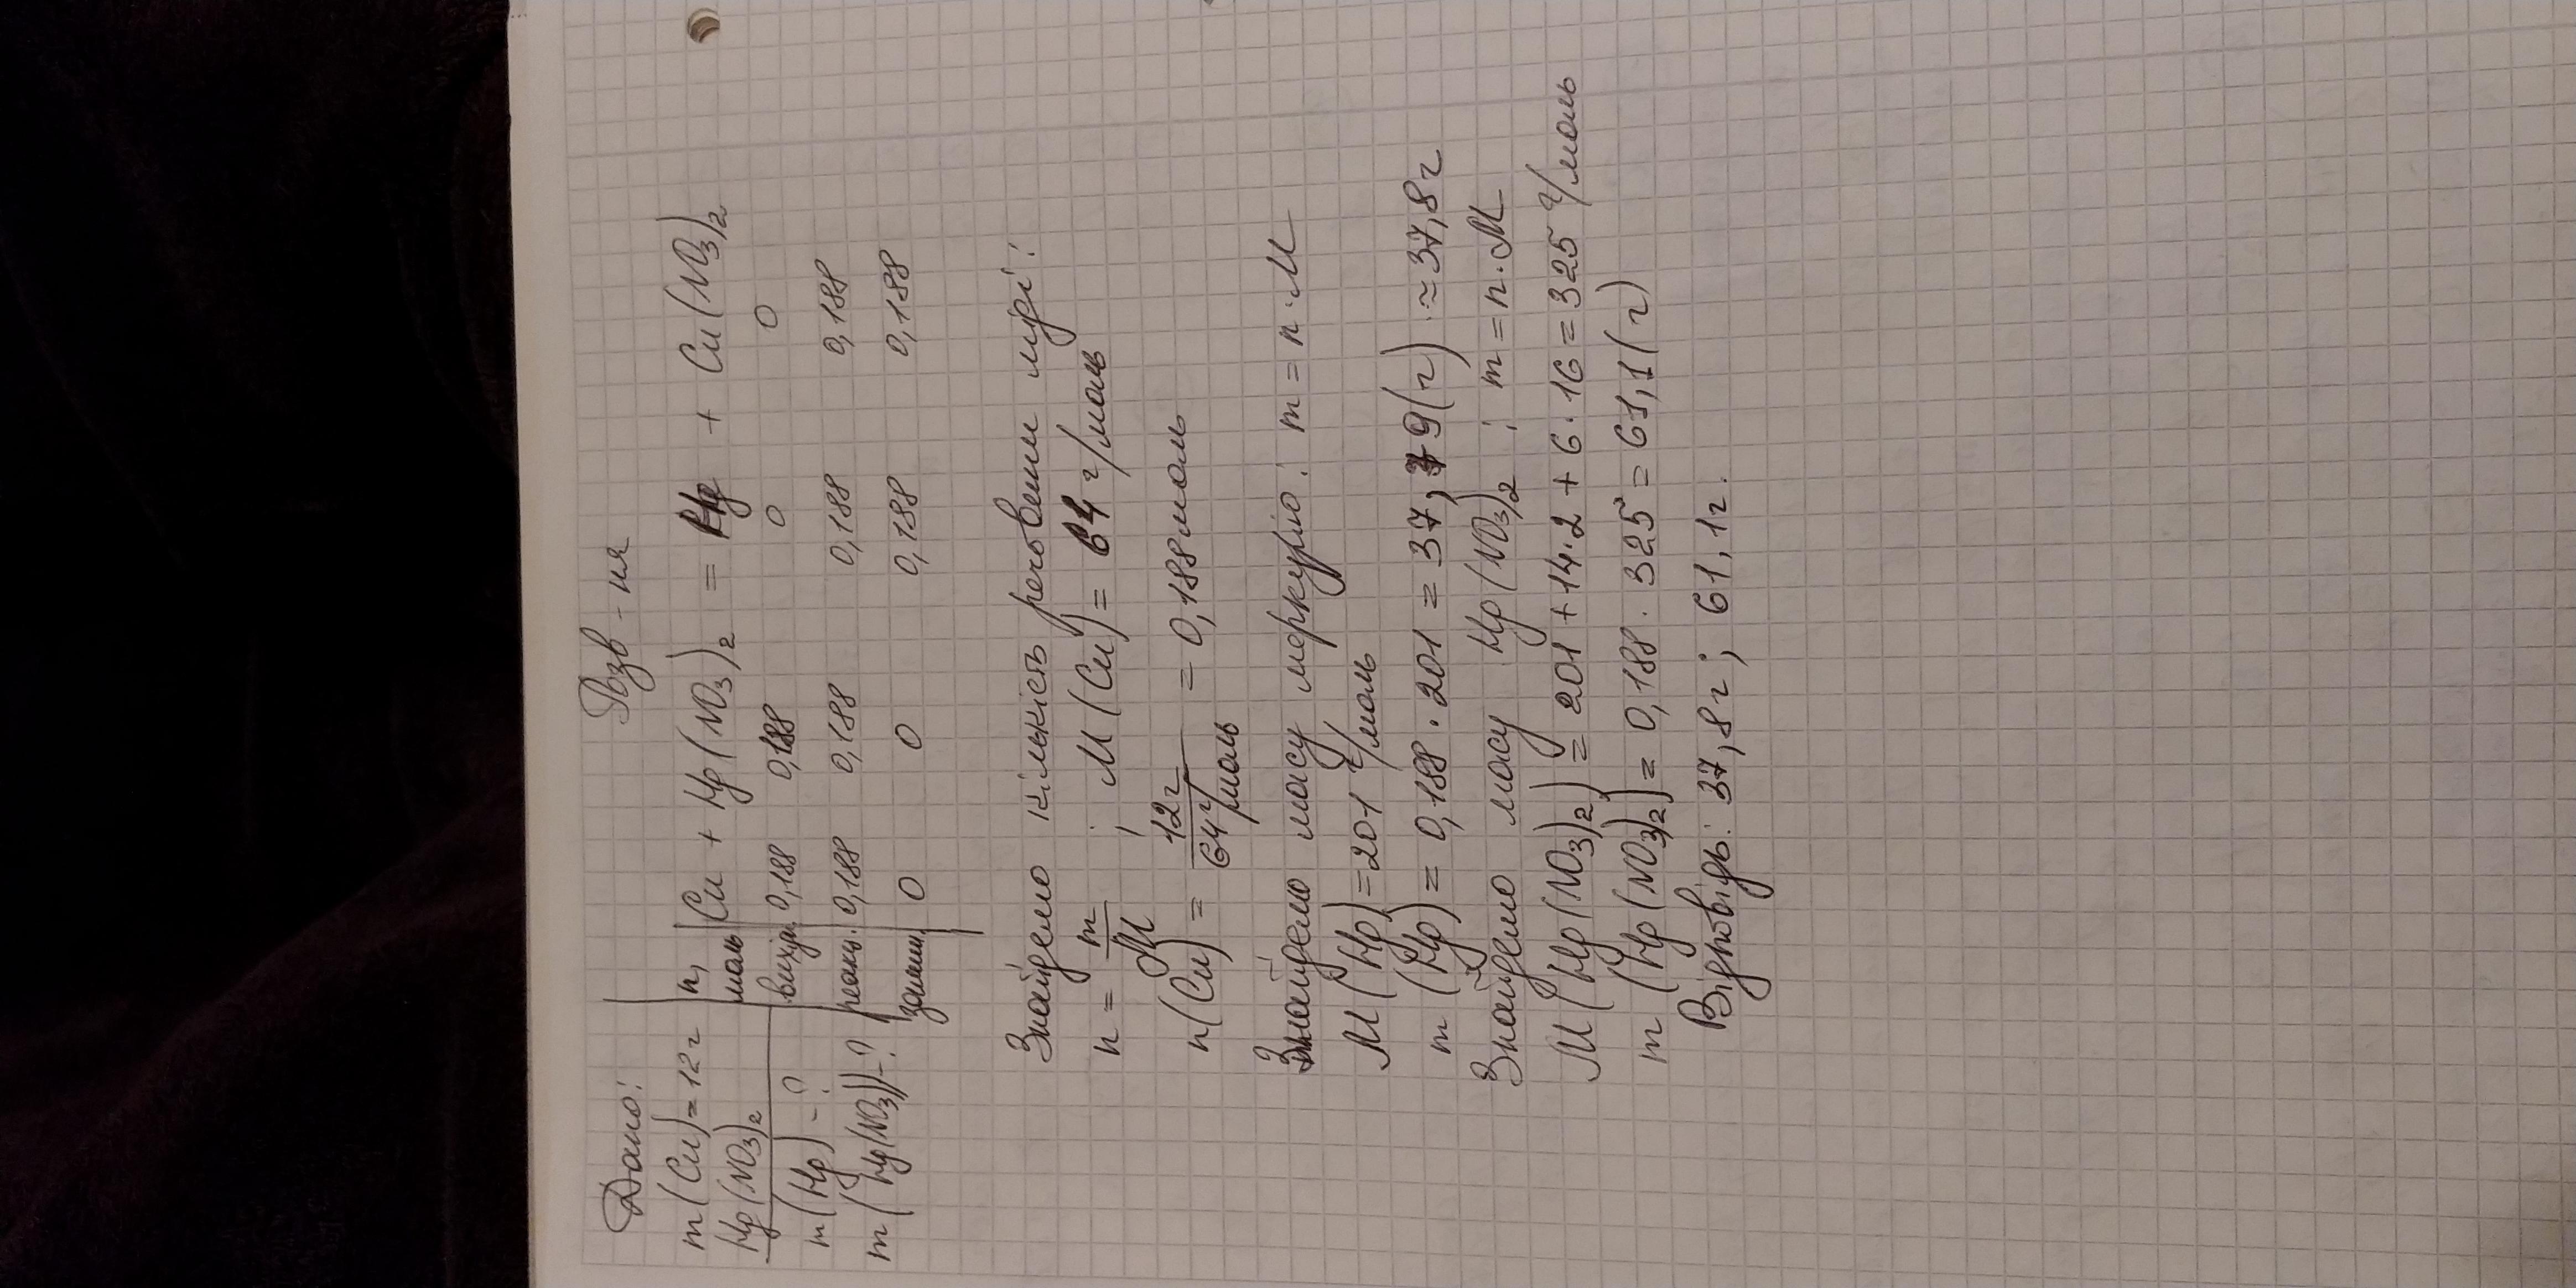 Дано:
m(Cu)=12г
Hg(NO3)2
m(Hg) -?
m(Hg(NO3)) -?
Розв-ня
n, моль | Cu + Hg(NO3)2 = Hg + Cu(NO3)2
вихідн. 0,188 0,188 0 0
реакц. 0,188 0,188 0,188 0,188
залиш. 0 0 0,188 0,188
Знайдемо кількість речовини міді:
n = m/M ; M(Cu) = 64 г/моль
n(Cu) = 12г/64г/моль = 0,188моль
Знайдемо масу меркурію: m = n·M
M(Hg)=201 г/моль
m(Hg) = 0,188·201 = 37,79(г) ≈ 37,8г
Знайдемо масу Hg(NO3)2 : m = n·M
M(Hg(NO3)2) = 201+14·2+6·16=325 г/моль
m(Hg(NO3)2) = 0,188·325 = 61,1(г)
Відповідь: 37,8г; 61,1г.